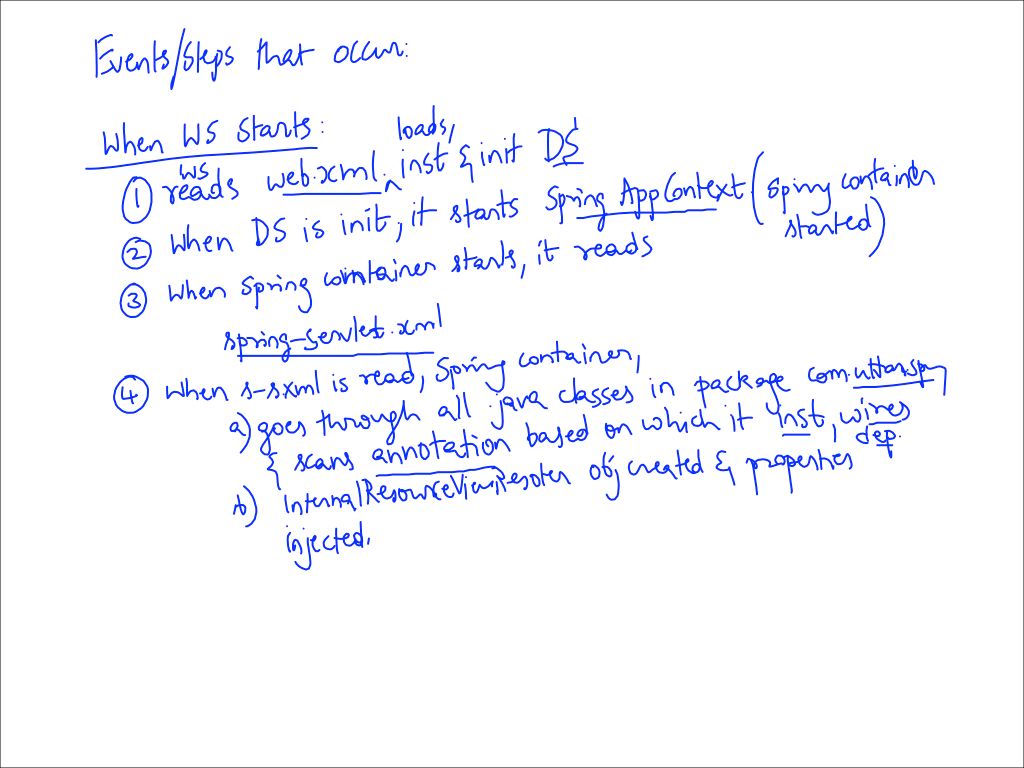 Events/Steps that occur:
When WS starts:
① WS reads web.xml, loads, inst & init DS
② When DS is init, it starts Spring AppContext (Spring container started)
③ When Spring container starts, it reads
spring-servlet.xml
④ When s-sxml is read, Spring container,
a) goes through all java classes in package com.
& scans annotation based on which it inst, wires dep.
b) InternalResourceViewResolver obj created & properties
injected.